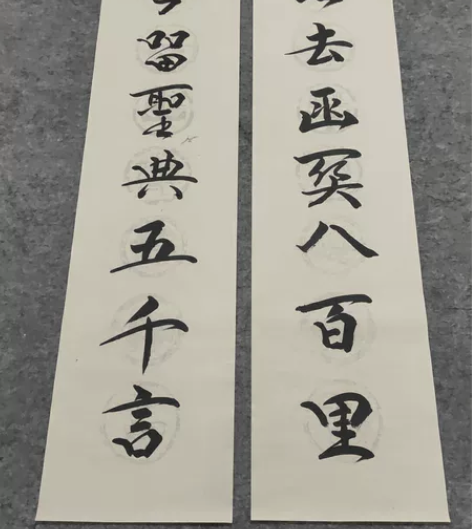 去函関八百里
留聖典五千言